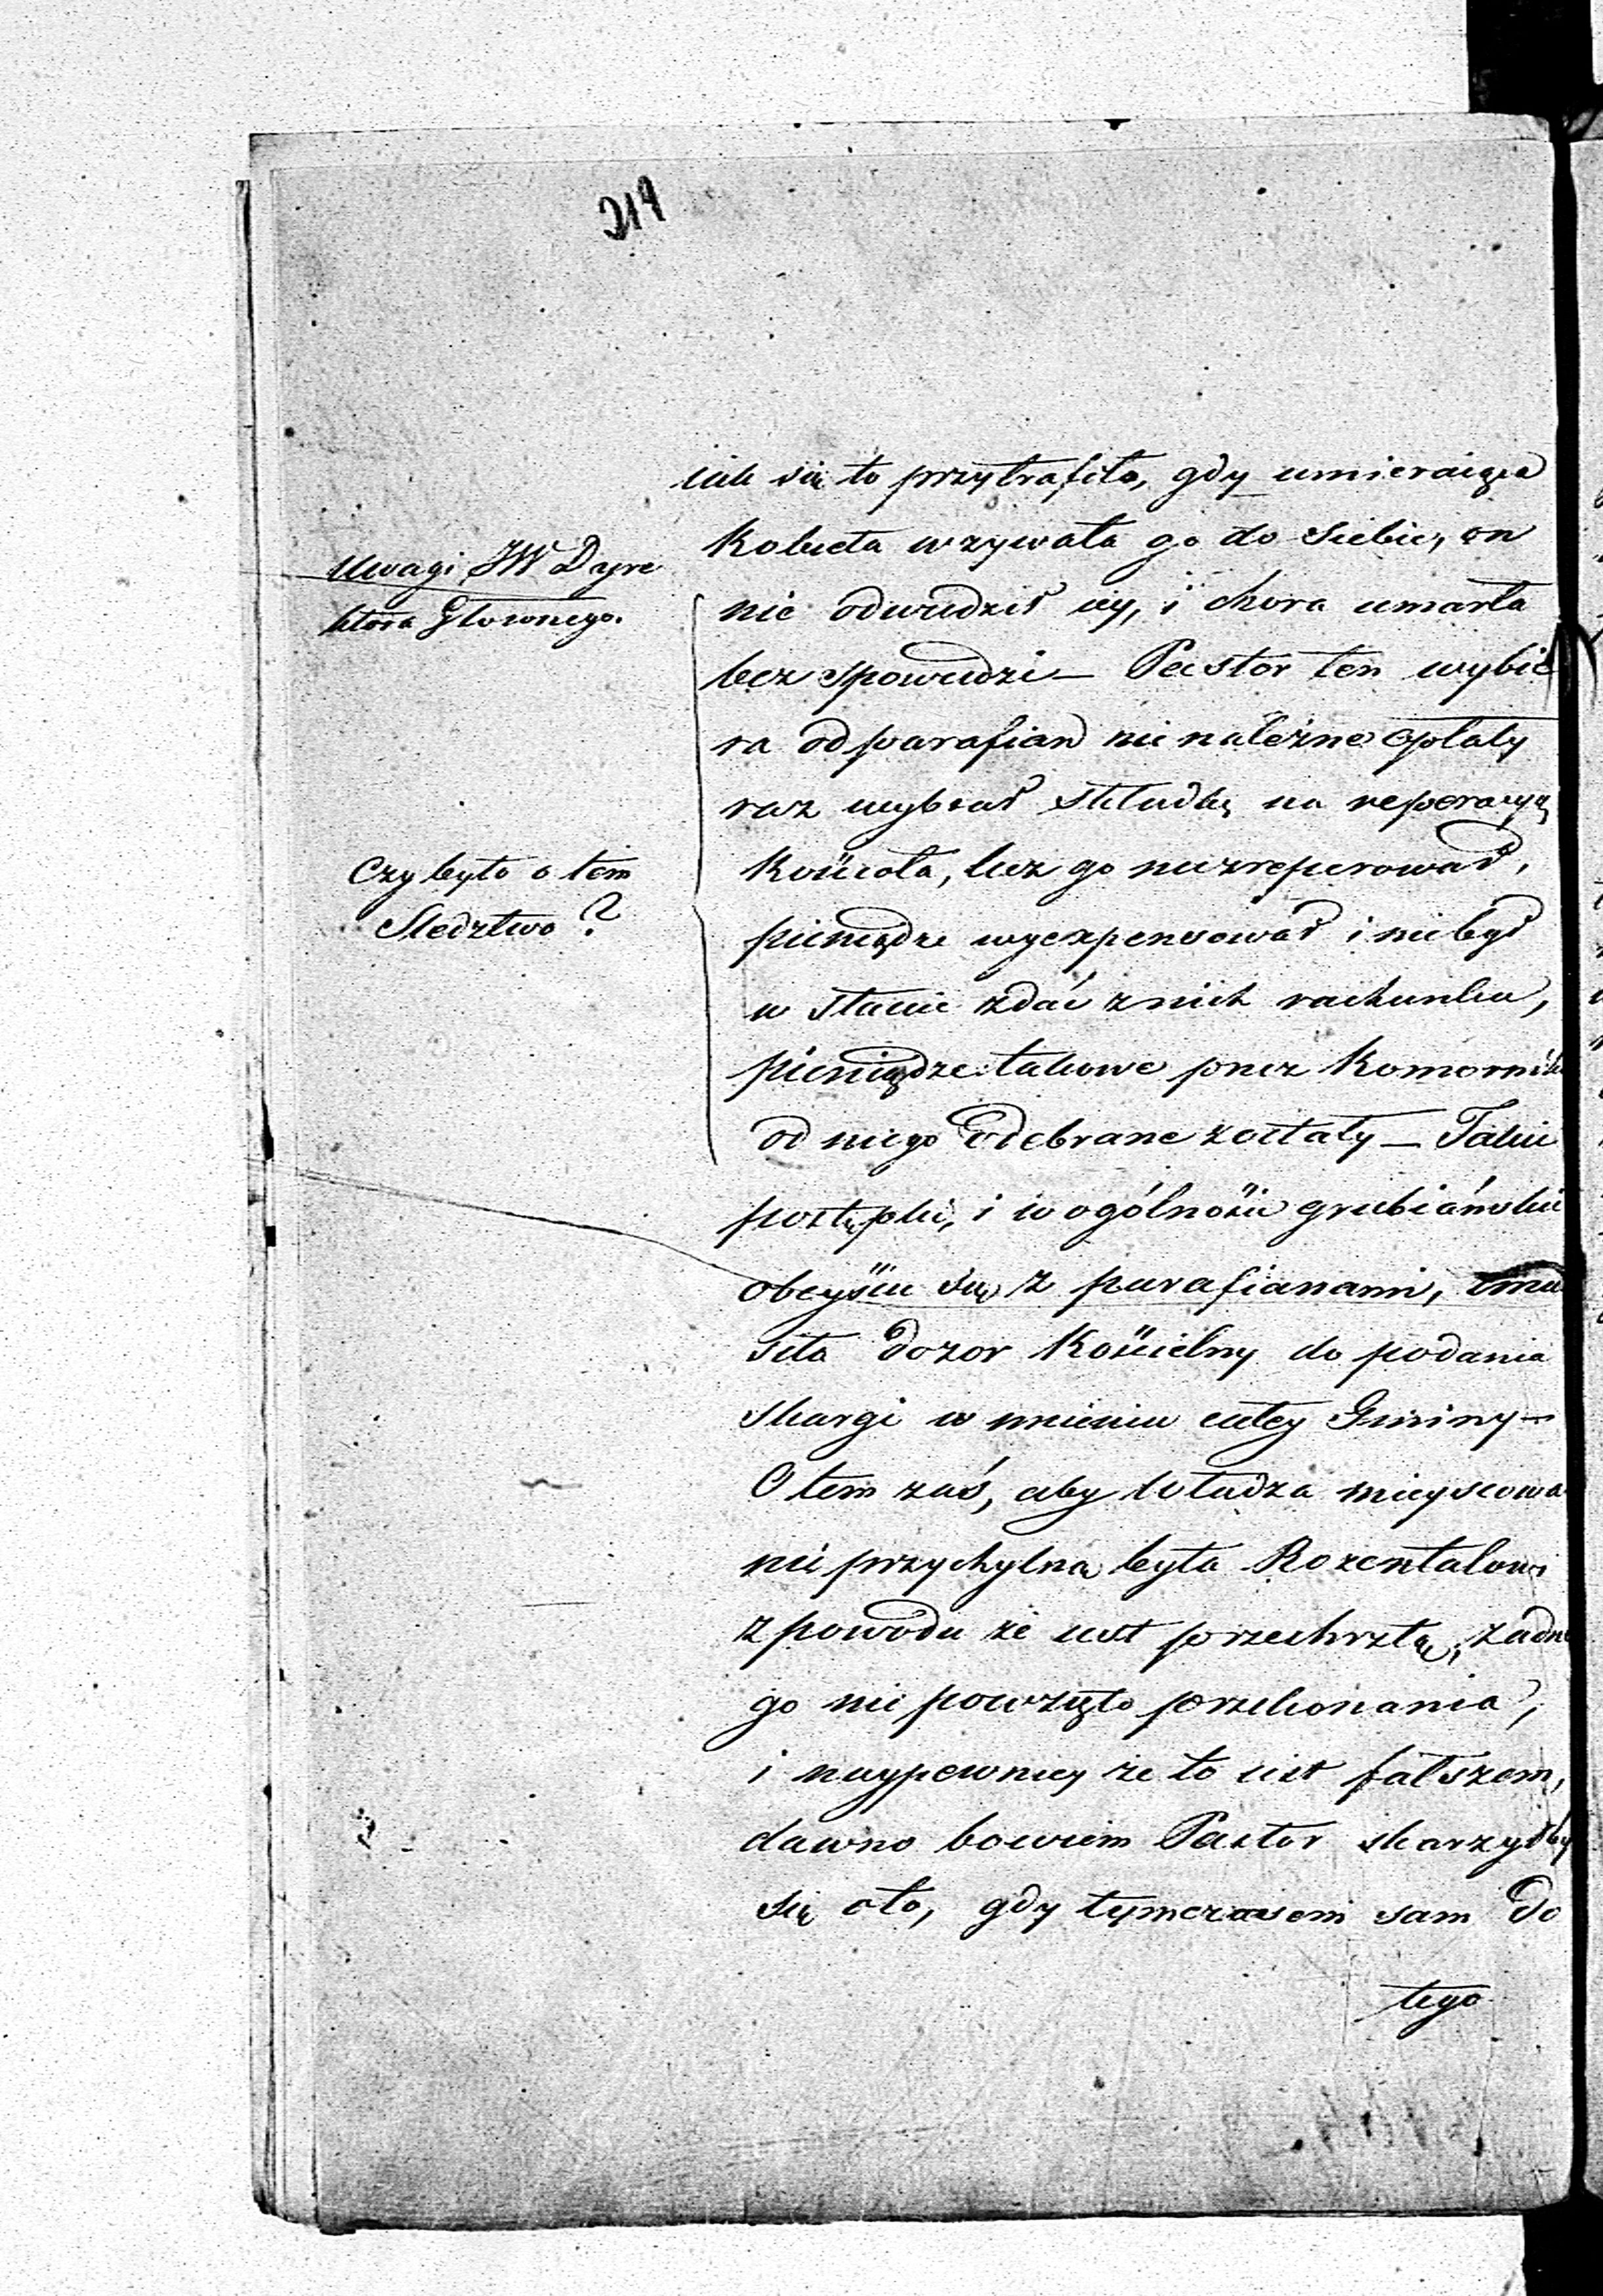 214
iak się to przytrafiło, gdy umieraiąca
Kobieta wzywała go do siebie, on
nie odwiedził iéy, i chora umarła
bez spowiedzi — Pastor ten wybie
ra od parafian nie należne opłaty
raz wybrał składkę na reperacyą
Kościoła, lecz go niezreperował,
pieniądze wyexpensował i niebył
w stanie zdać z nich rachunku,
pieniądze takowe przez Komornika
od niego odebrane zostały — Takie
postępki, i w ogólności grubiańskie
obeyście się z parafianami, zmu
siło Dozor Kościelny do podania
skargi w imieniu całey Gminy —
O tem zaś, aby władza mieyscowa
nieprzychylną była Rozentalowi
z powodu że iest przechrztą, żadne
go nie powzięto przekonania,
i naypewniey że to iest fałszem,
dawno bowiem Pastor skarżyłby
się oto, gdy tymczasem sam do
tego
Uwagi JW Dyre
ktora Głownego.
Czy było o tem
Sledztwo?